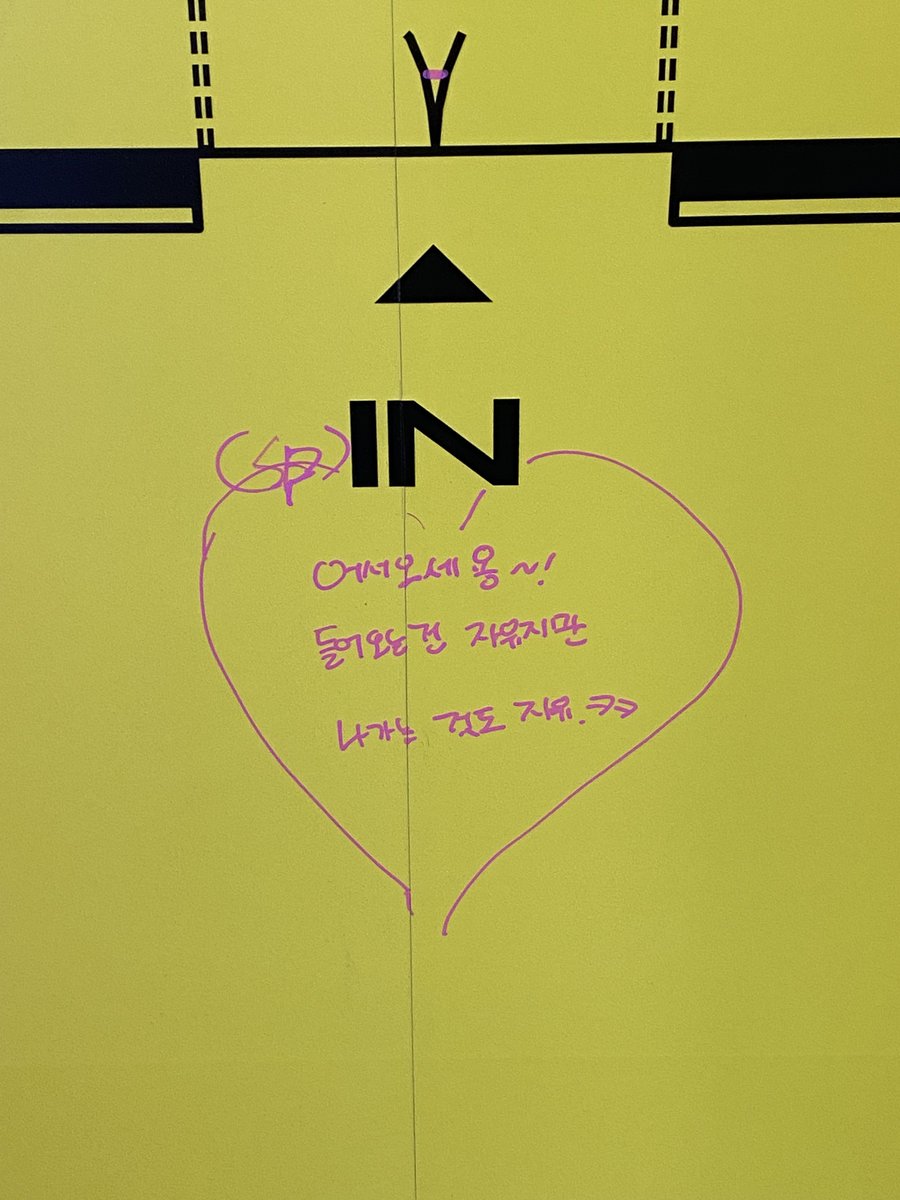 IN
어서오세용~!
들어오는건 자유지만
나가는 것도 자유.ㅋㅋ